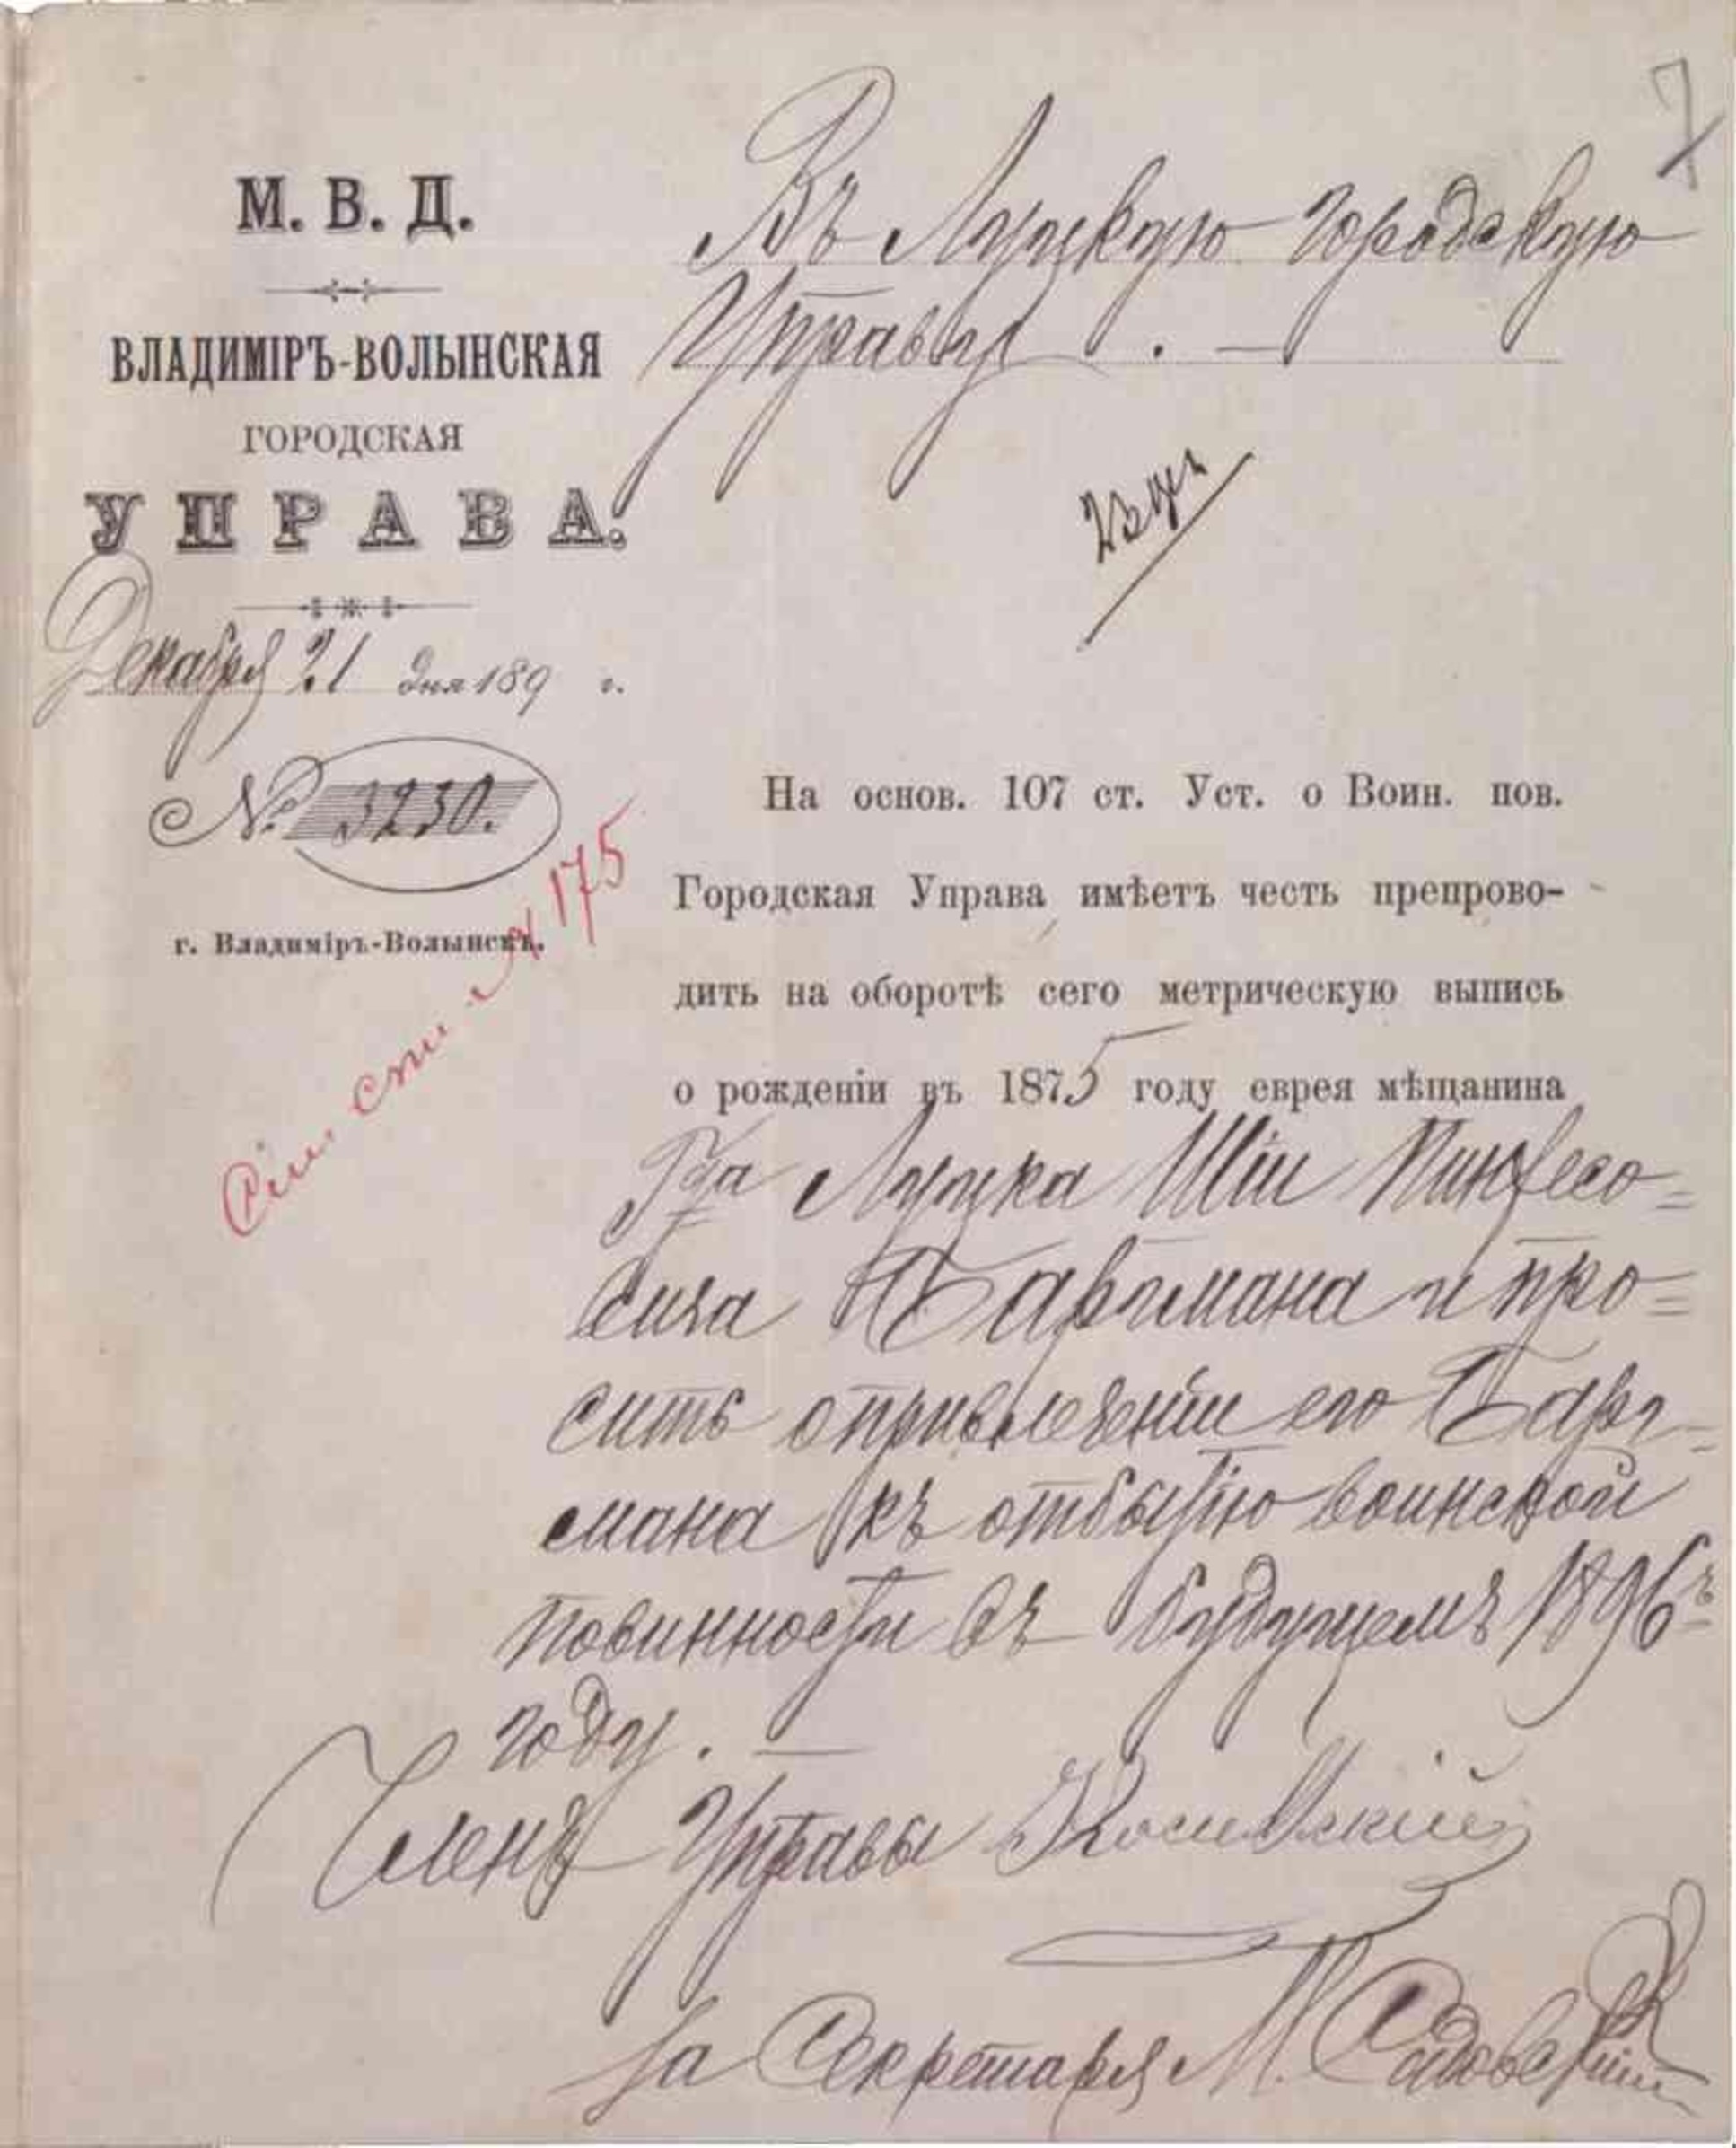 7
М. В. Д.
ВЛАДИМІРЪ-ВОЛЫНСКАЯ
ГОРОДСКАЯ
УПРАВА.
Декабря 21 дня 189 г.
№ 3230.
г. Владиміръ-Волынскъ.
№ 175
Въ Луцкую городскую
Управу. —
На основ. 107 ст. Уст. о Воин. пов.
Городская Управа имѣетъ честь препрово-
дить на оборотѣ сего метрическую выпись
о рожденіи въ 1875 году еврея мѣщанина
г̲да Луцка Шіи Пинхесо=
вича Баргмана и про=
ситъ о привлеченіи его Барг=
мана къ отбытію воинской
повинности въ будущемъ 1896ъ
году. —
Членъ Управы
За Секретаря М. Садовскій